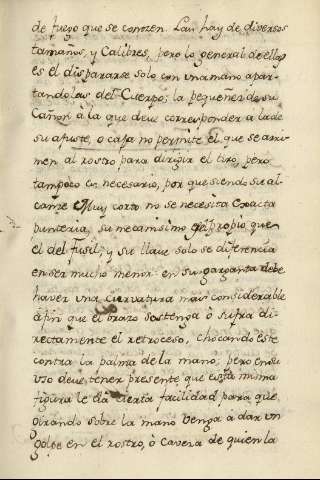 de fuego que se conocen. Las hay de diversos
tamaños, y Calibres, pero lo general de ellas
es el dispararse solo con una mano apar-
tandolas del Cuerpo; la pequeñez de su
Cañon à la que deve corresponder à la de
su ajuste, o caja no permite el que se arri-
men al rostro para dirigir el tiro, pero
tampoco es necesario, por que siendo su al-
canze Muy corto no se necesita exacta
punteria, su mecanismo es el propio que
el del fusil, y su llave solo se diferencia
en ser mucho menor: en su garganta debe
haver una curvatura mas considerable
à fin que el brazo sostenga ò sufra di-
rectamente el retroceso, chocando este
contra la palma de la mano, pero en su
uso deve tener presente que esta misma
figura le dà cierta facilidad para que
girando sobre la mano venga à dar un
golpe en el rostro, ò caveza de quien la